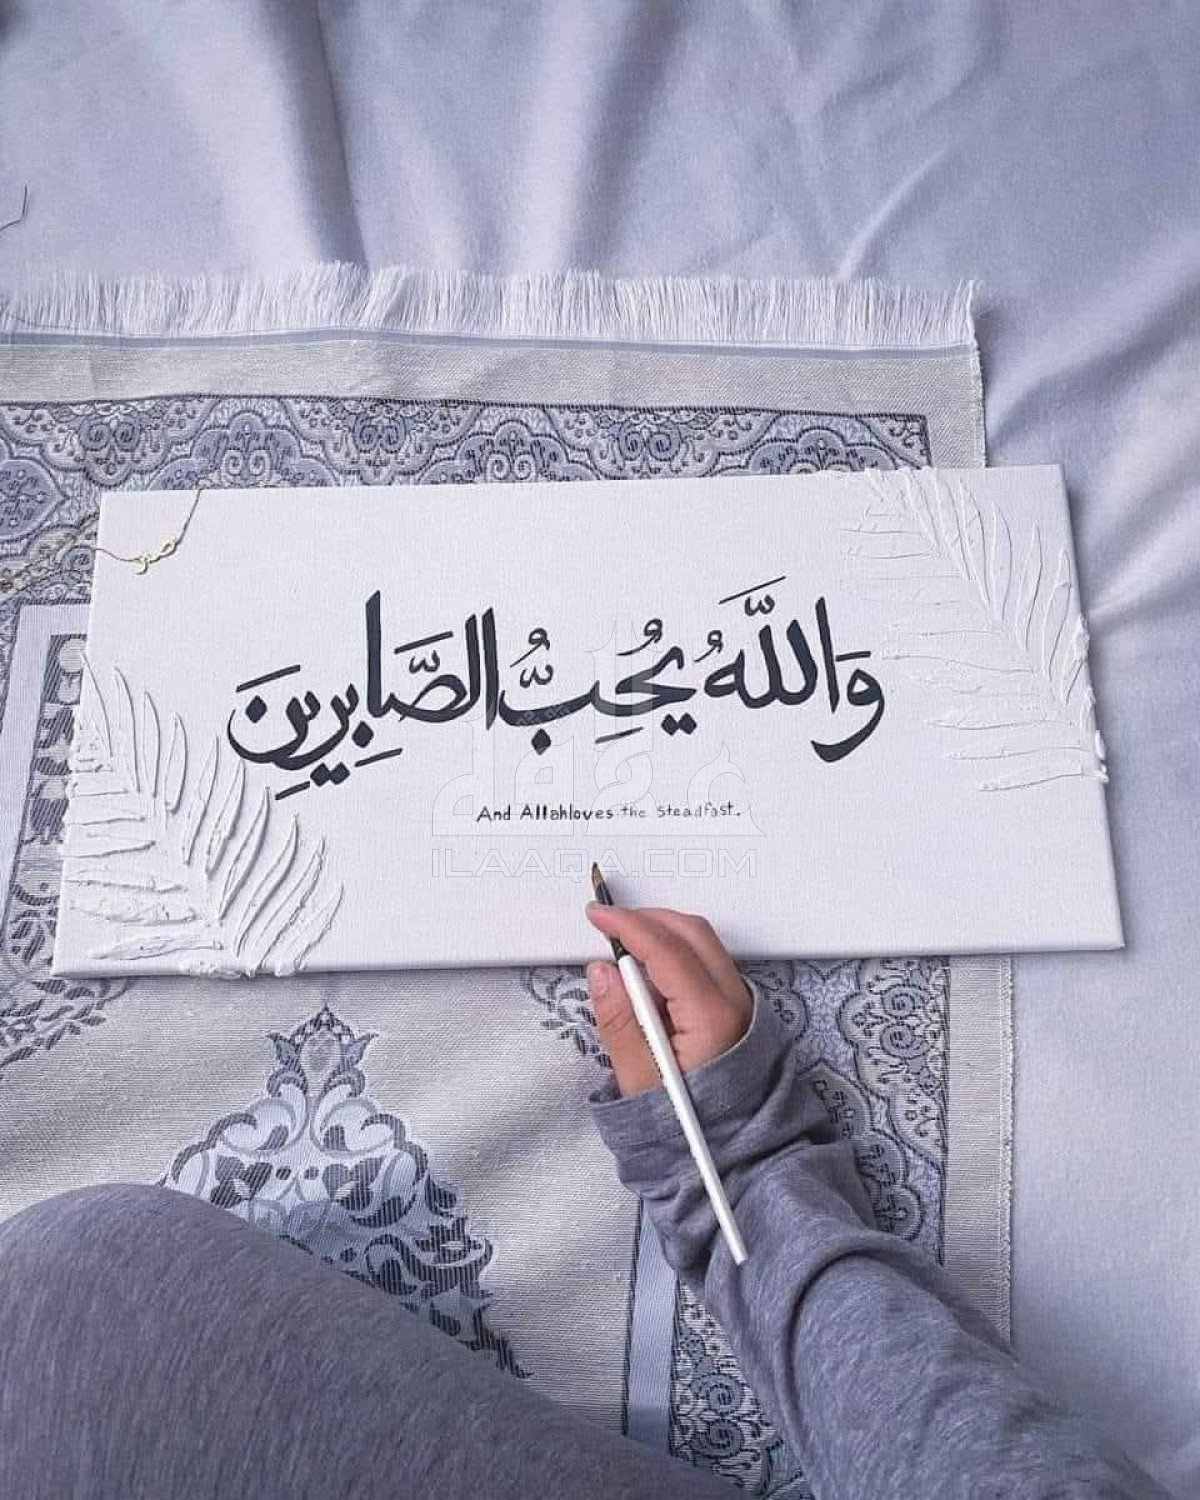 وَاللَّهُ يُحِبُّ الصَّابِرِينَ
And Allahloves the steadfast.
علاقة
ILAAQA.COM